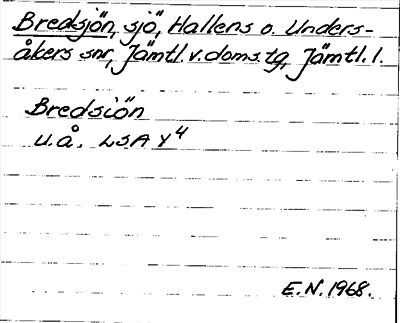 Bredsjön, sjö, Hallens o. Unders-
åkers snr, Jämtl. v. doms. tg, Jämtl. l.
Bredsiön
u.å. LSA Y4
E.N. 1968.